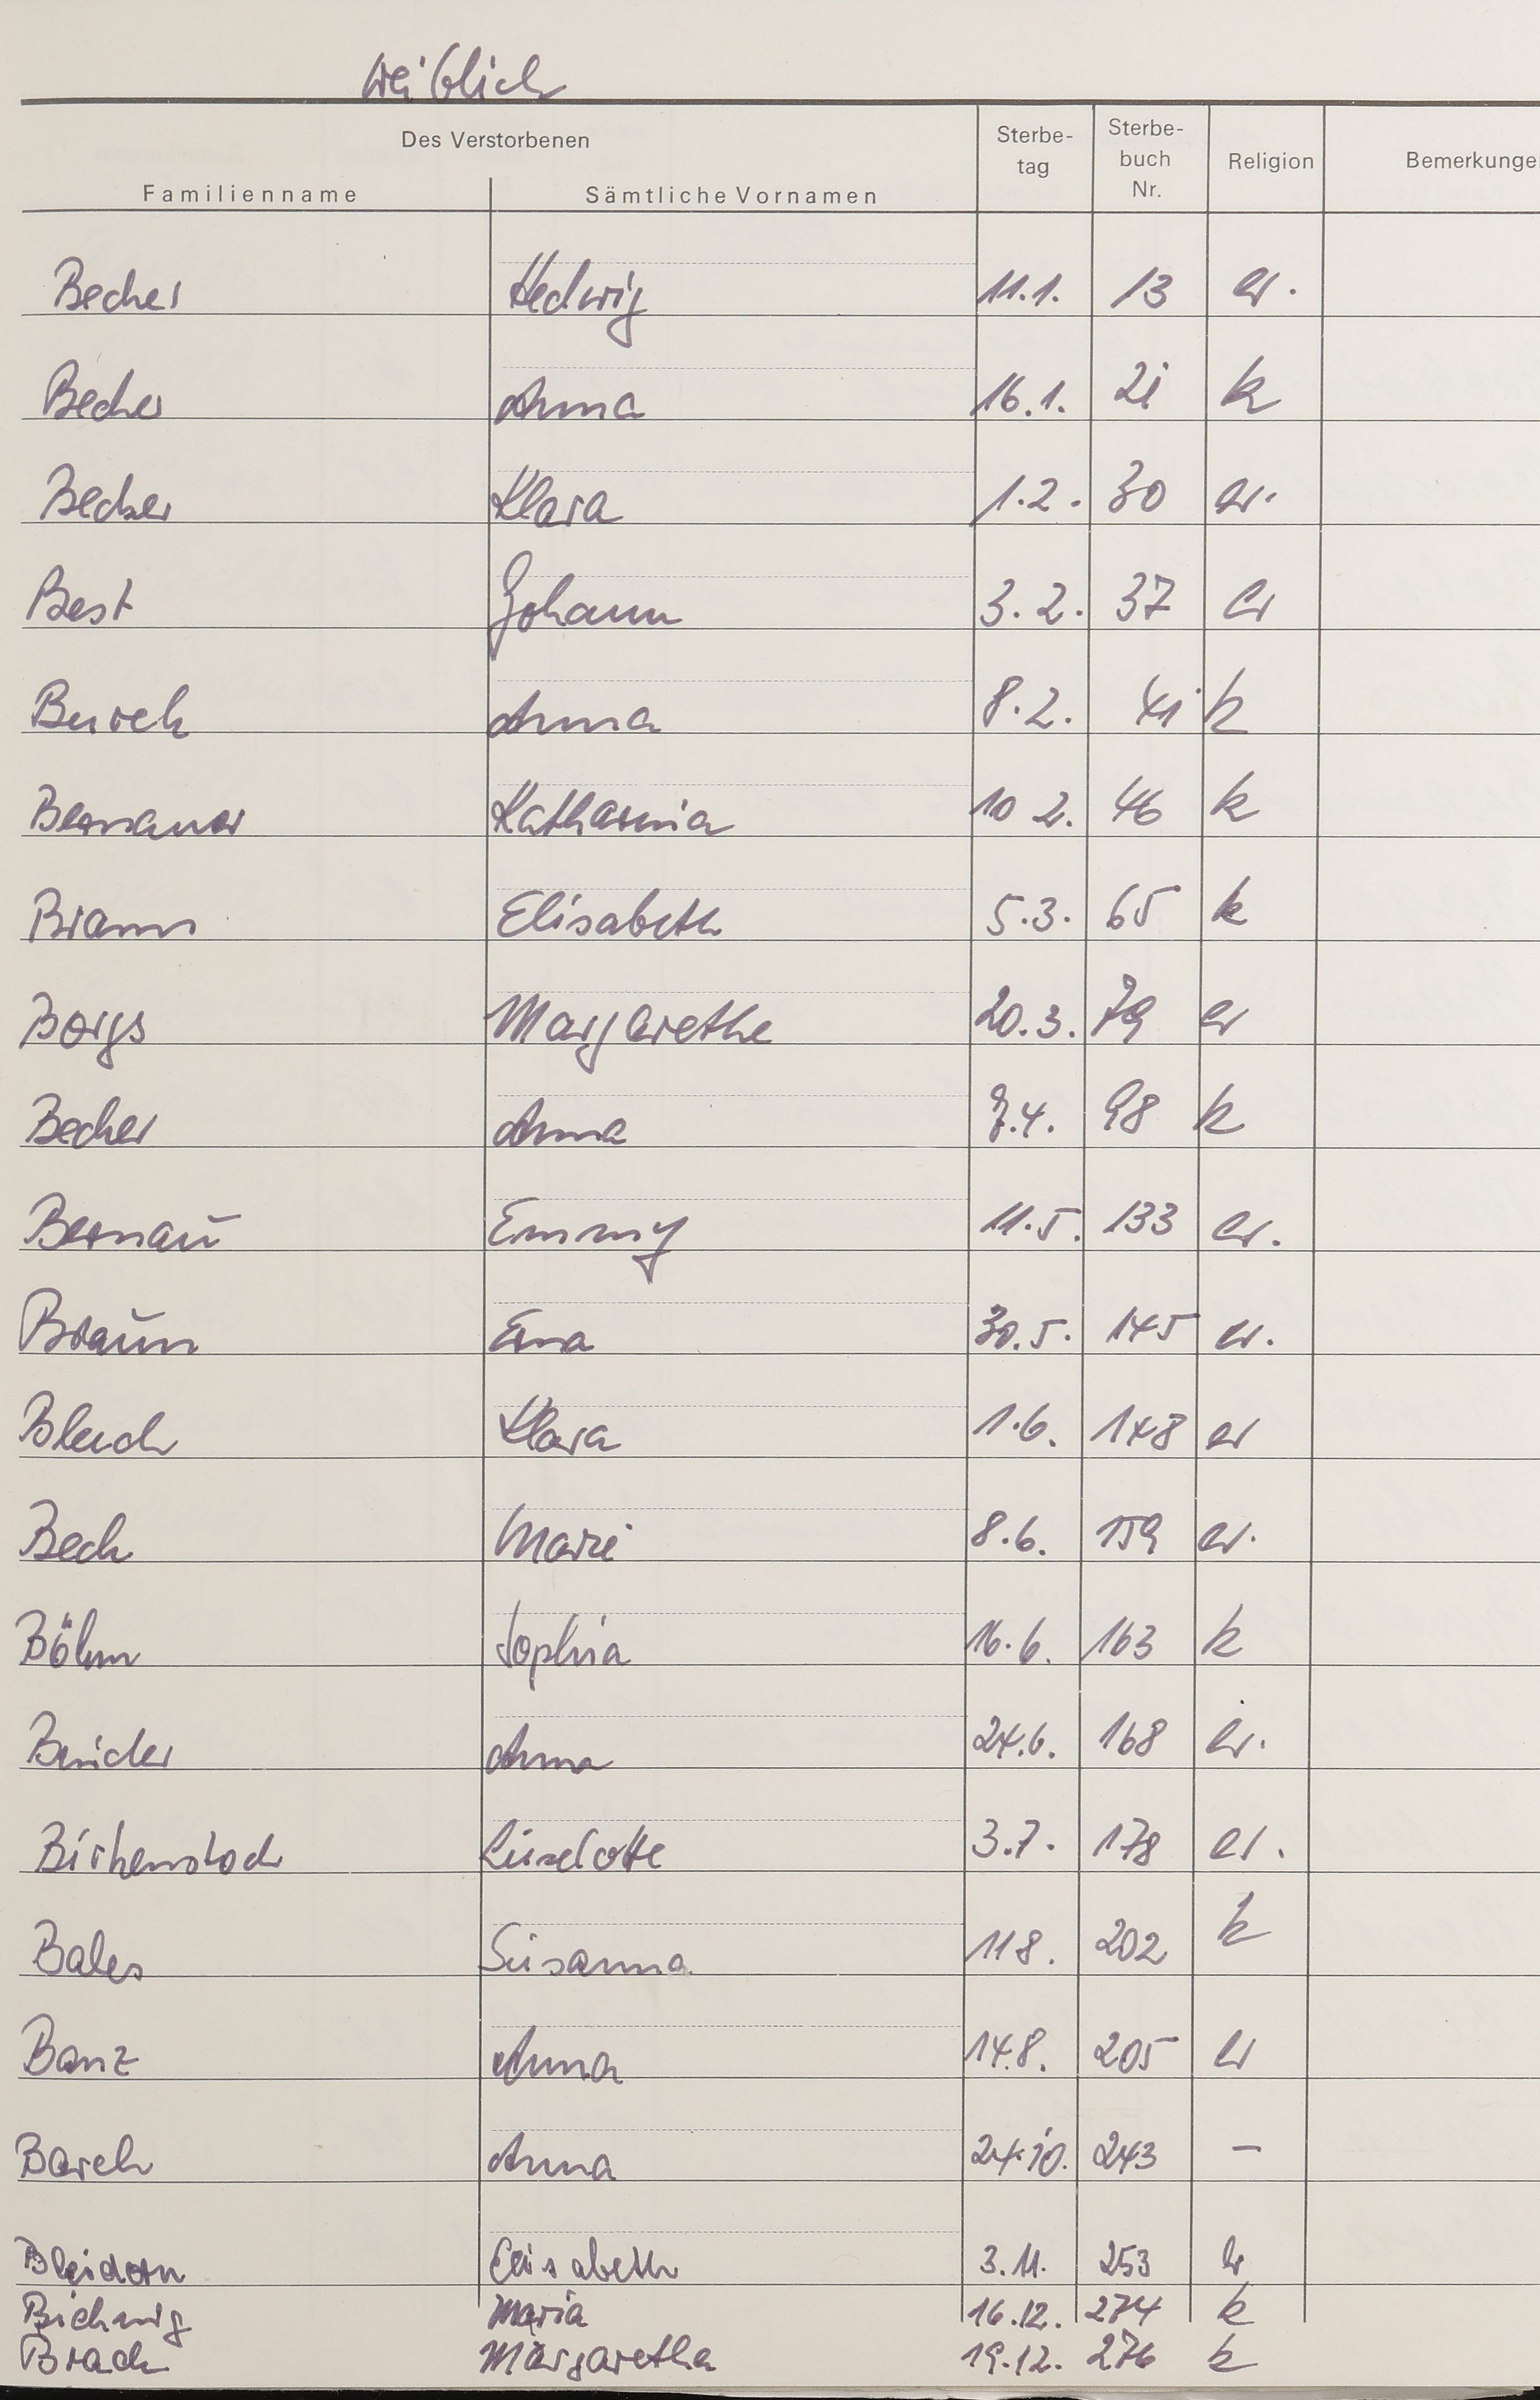 weiblich
Des Verstorbenen
Familienname Sämtliche Vornamen Sterbe-tag Sterbe-buch Nr. Religion Bemerkungen
Becher Hedwig 11.1. 13 ev.
Becher Anna 16.1. 21 k
Becker Klara 1.2. 30 ev.
Best Johann 3.2. 37 ev
Burch Anna 8.2. 41 k
Bernauer Katharina 10 2. 46 k
Braun Elisabeth 5.3. 65 k
Borgs Margarethe 20.3. 79 ev
Becher Anna 7.4. 98 k
Bernau Emmy 11.5. 133 ev.
Braun Erna 30.5. 145 ev.
Klara 1.6. 148 ev
Beck Marie 8.6. 159 ev.
Böhm Sophia 16.6. 163 k
Anna 24.6. 168 ev.
Birkenstock Liselotte 3.7. 178 ev.
Bales Susanna 118. 202 k
Banz Anna 14.8. 205 ev
Barch Anna 24.10. 243 –
Bleidorn Elisabeth 3.11. 253 ev
Maria 16.12. 274 k
Brack Margaretha 19.12. 276 k